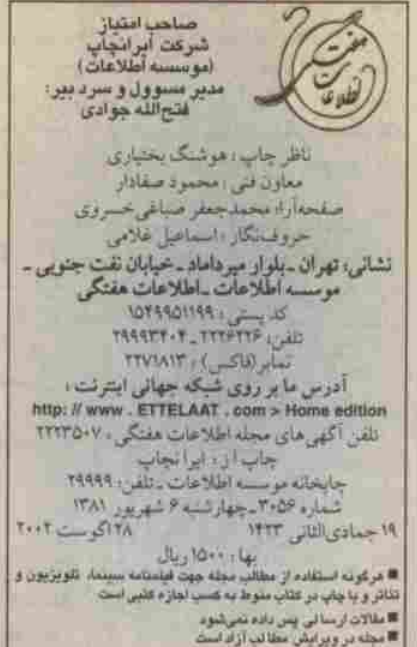 اطلاعات هفتگی
صاحب امتیاز
شرکت ایرانچاپ
(موسسه اطلاعات)
مدیر مسوول و سردبیر:
فتح‌الله جوادی
ناظر چاپ: هوشنگ بختیاری
معاون فنی: محمود صفادار
صفحه‌آرا: محمدجعفر صباغی خسروی
حروف‌نگار: اسماعیل غلامی
نشانی: تهران ـ بلوار میرداماد ـ خیابان نفت جنوبی ـ
موسسه اطلاعات ـ اطلاعات هفتگی
کد پستی: ۱۵۴۹۹۵۱۱۹۹
تلفن: ۲۲۲۶۲۲۶ ـ ۲۹۹۹۳۴۰۴
نمابر(فاکس): ۲۲۷۱۸۱۳
آدرس ما بر روی شبکه جهانی اینترنت:
http: // www . ETTELAAT . com > Home edition
تلفن آگهی های مجله اطلاعات هفتگی: ۲۲۲۳۵۰۷
چاپ از: ایرانچاپ
چاپخانه موسسه اطلاعات ـ تلفن: ۲۹۹۹۹
شماره ۳۰۵۶ ـ چهارشنبه ۶ شهریور ۱۳۸۱
۱۹ جمادی‌الثانی ۱۴۲۳ ۲۸ آگوست ۲۰۰۲
بها: ۱۵۰۰ ریال
■ هرگونه استفاده از مطالب مجله جهت فیلمنامه سینما، تلویزیون و
تئاتر و یا چاپ در کتاب منوط به کسب اجازه کتبی است
■ مقالات ارسالی پس داده نمی‌شود
■ مجله در ویرایش مطالب آزاد است